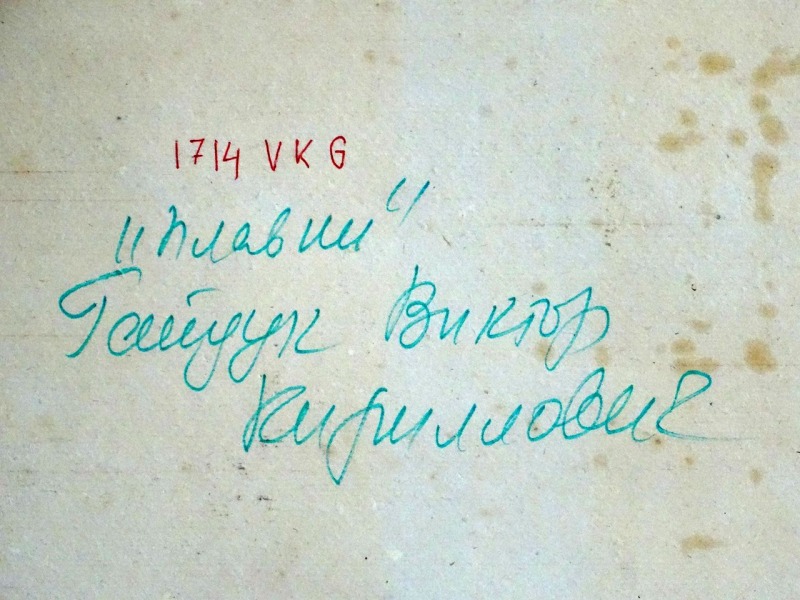 1714 VKG
„Плавни“
Гайдук Виктор
Кириллович